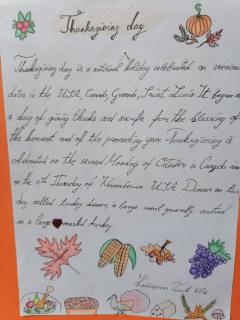 Thanksgiving day
Thanksgiving day is a national holiday celebrated on various
dates in the USA, Canada, Grenada, Saint Lucia. It began as
a day of giving thanks and sacrifice for the blessing of
the harvest and of the preceding year. Thanksgiving is
celebrated on the second Monday of October in Canada and
on the 4th Thursday of November in USA. Dinner on this
day called turkey dinner, a large meal generally centered
on a large roasted turkey.